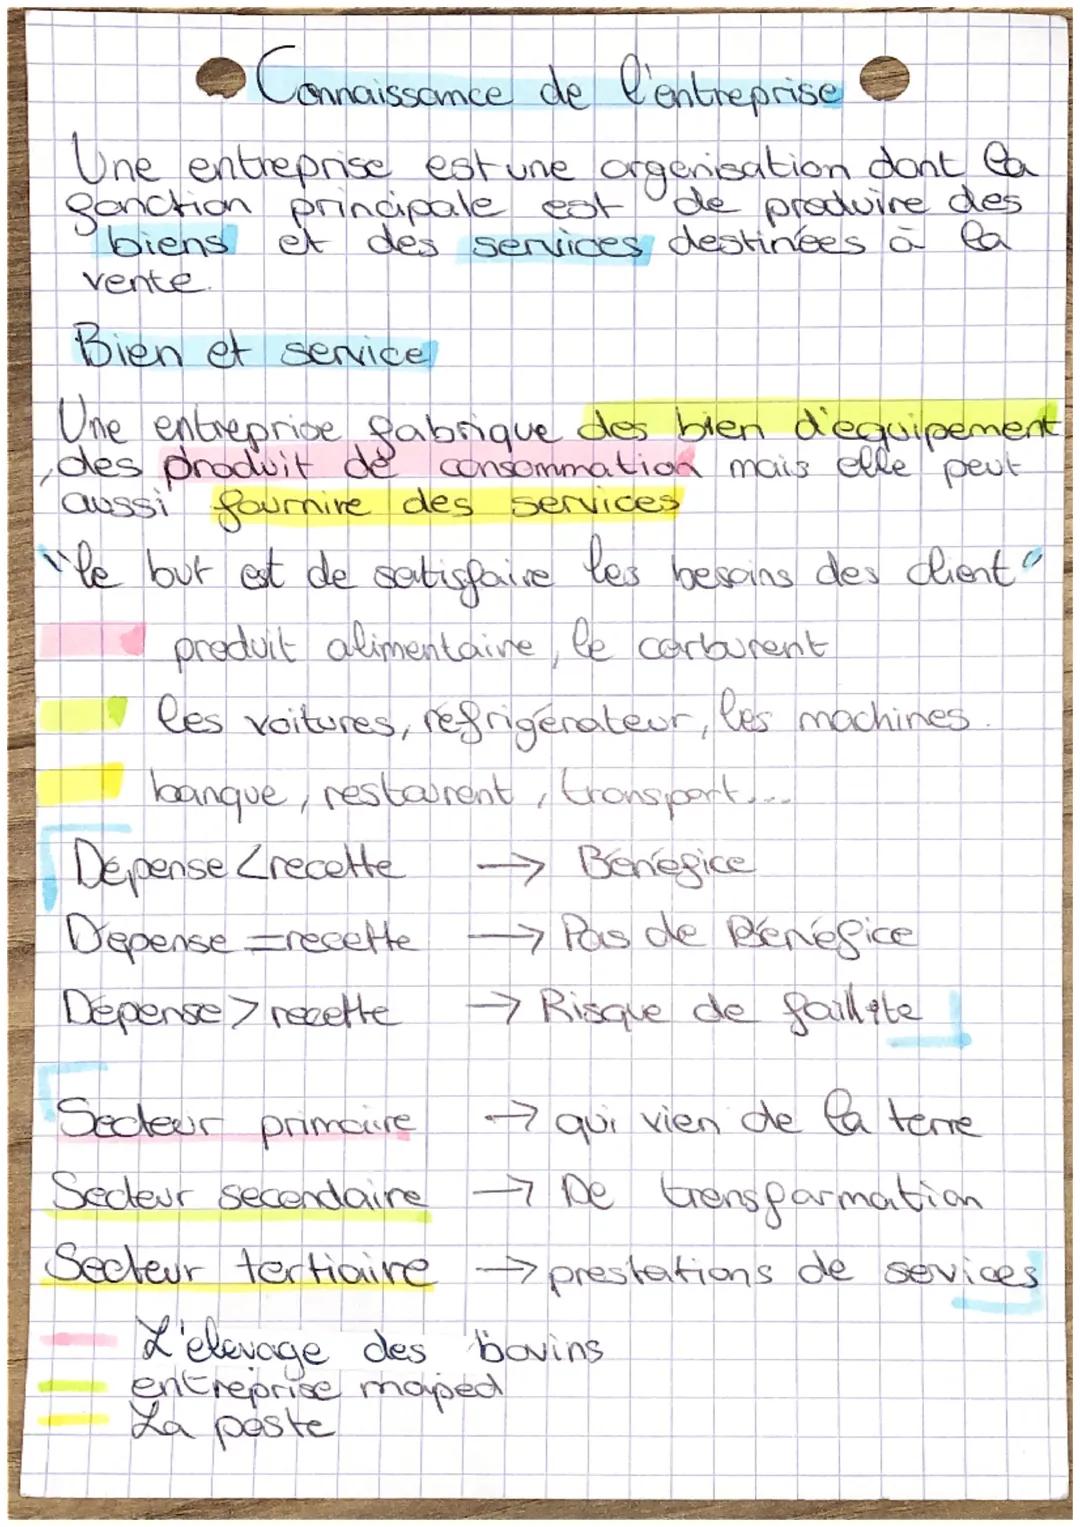 Connaissance de l'entreprise
Une entreprise est une orgenisation dont la
fonction principale est de produire des
biens et des services destinées à la
vente.
Bien et service
Une entreprise fabrique des bien d'équipement
, des produit de consommation mais elle peut
aussi fournire des services
"le but est de satisfaire les besoins des client"
produit alimentaire, le carburent
les voitures, réfrigérateur, les machines.
banque, restaurent, transport...
Dépense < recette → Bénéfice
Dépense = recette → Pas de Bénéfice
Dépense > recette → Risque de faillite
Secteur primaire → qui vien de la terre
Secteur secondaire → De transformation
Secteur tertiaire → prestations de sevices
L'élevage des bovins
entreprise maped
La poste